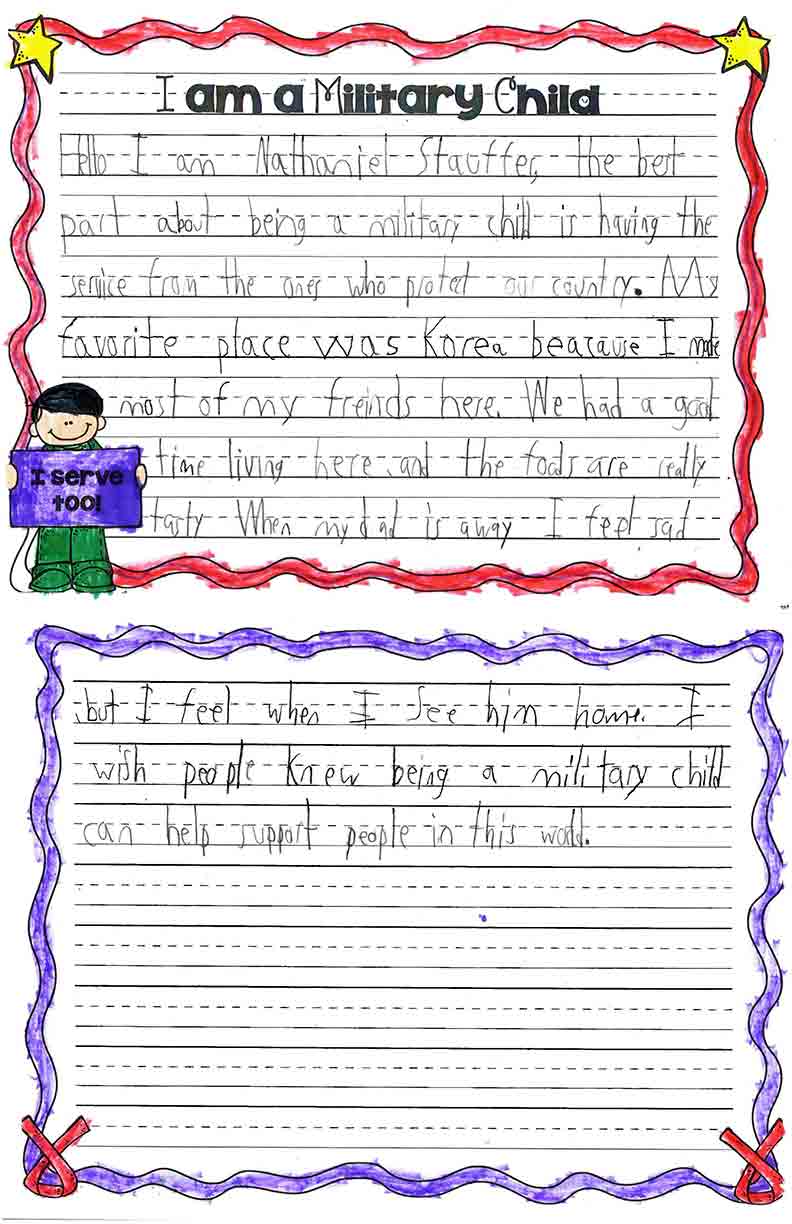 I am a Military Child
Hello I am Nathaniel Stauffer, the best
part about being a military child is having the
service from the ones who protect our country. My
favorite place was Korea beacause I made
most of my freinds here. We had a good
I serve
too!
time living here and the foods are really
tasty When my dad is away I feel sad
but I feel when I see him home. I
wish people knew being a military child
can help support people in this world.